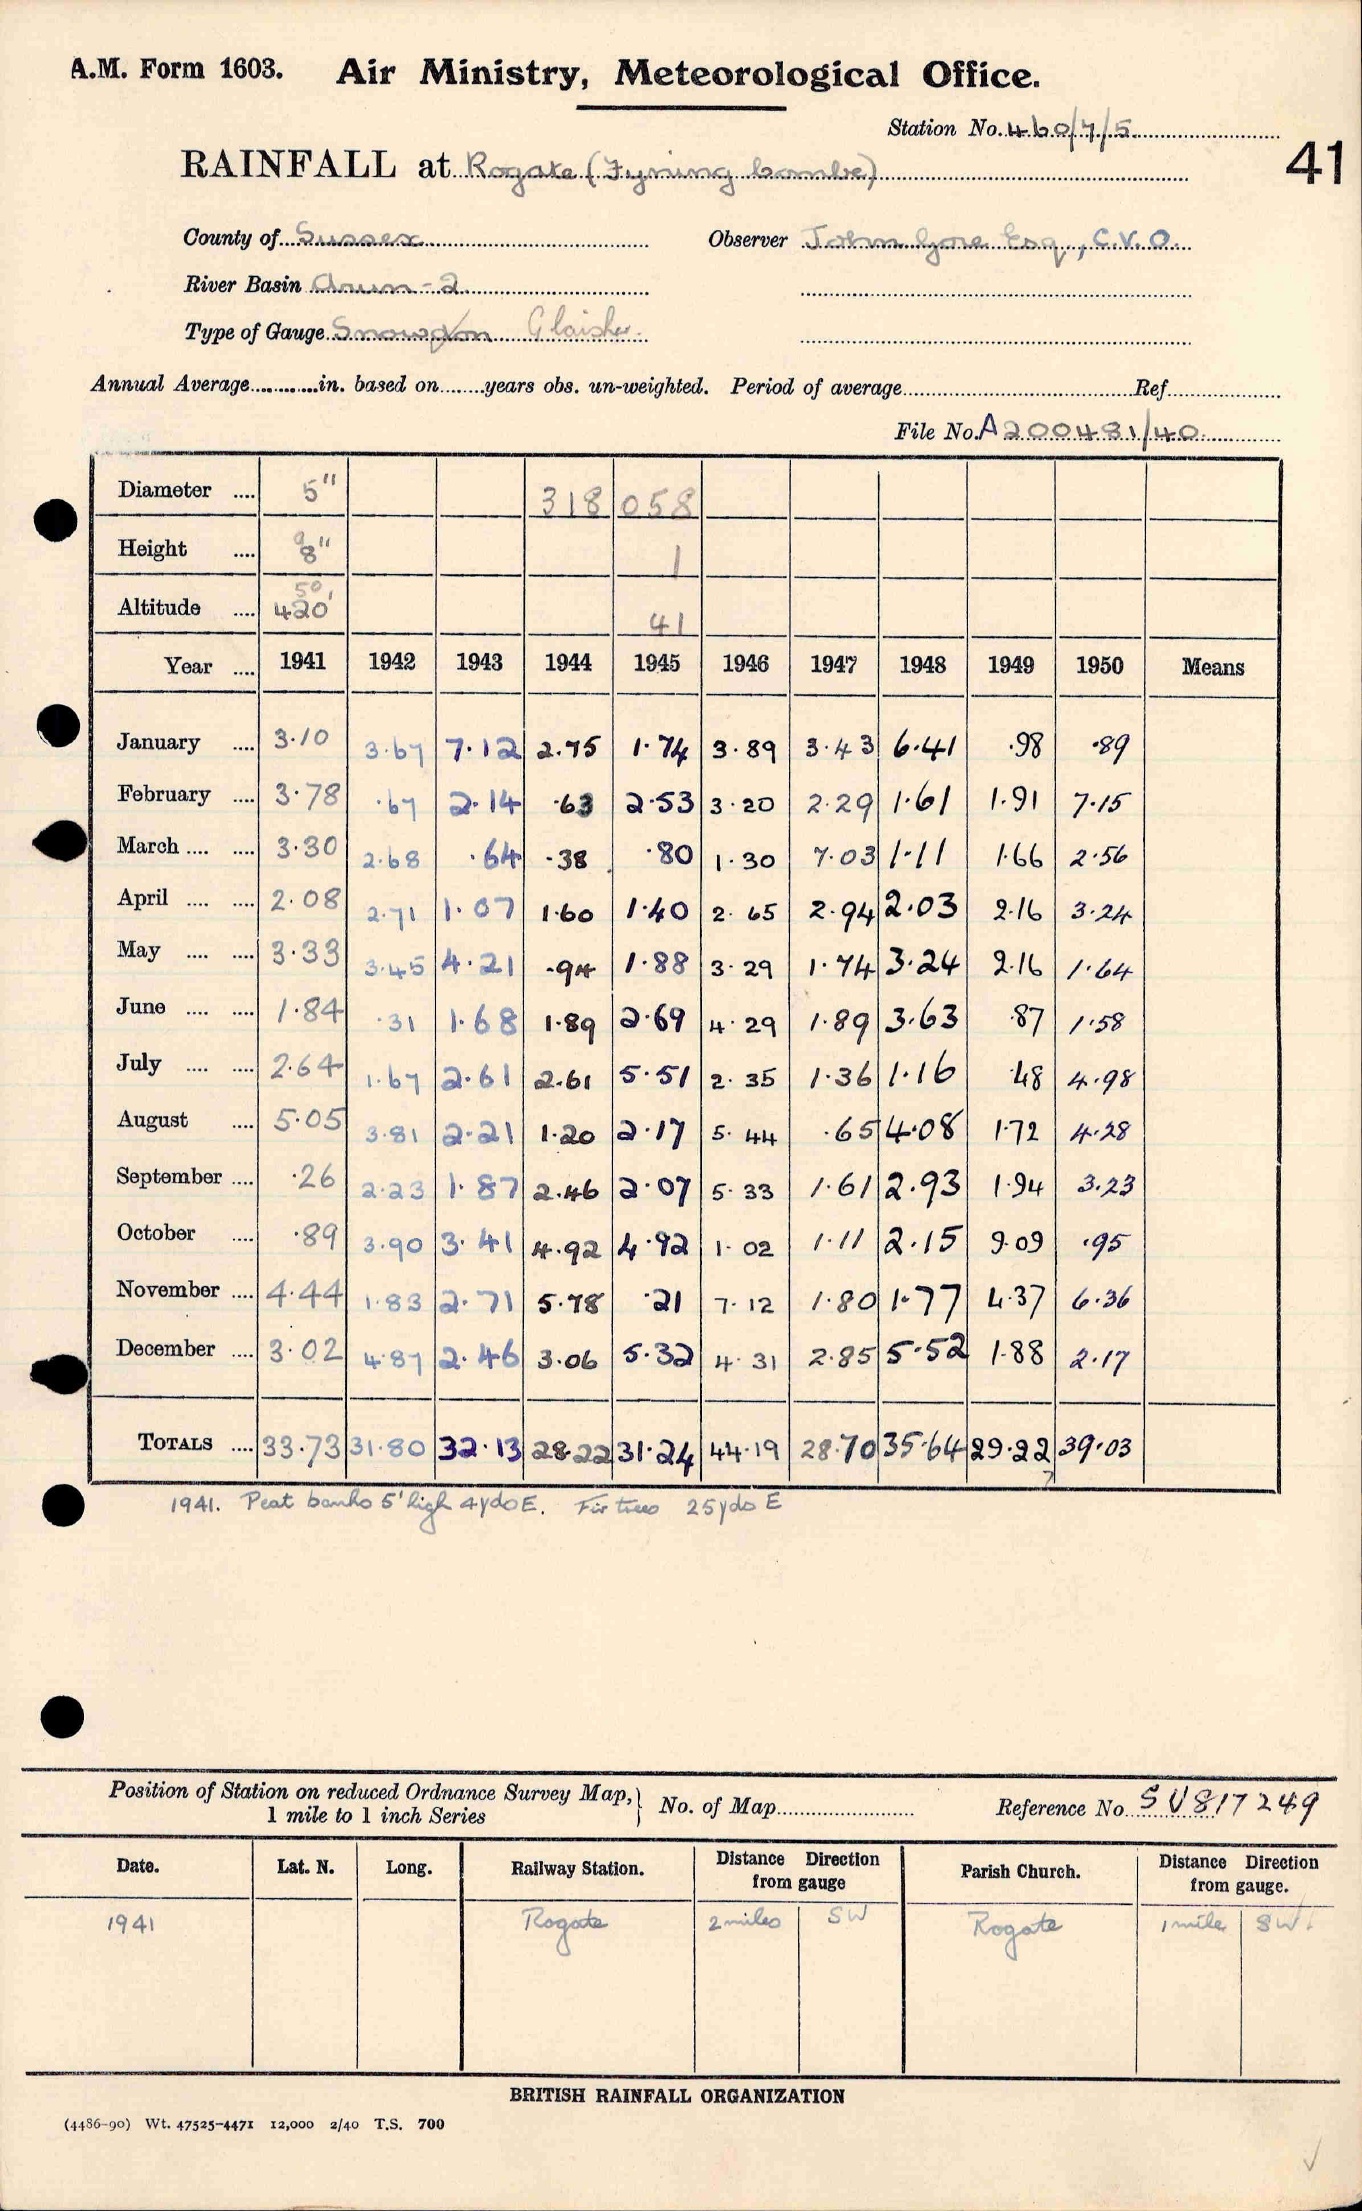 A.M. Form 1603. Air Ministry, Meteorological Office.
Station No. 460/7/5
41
RAINFALL at Rogate (Fyning Combe)
County of Sussex Observer John Gore Esq., C.V.O.
River Basin Arun-2
Type of Gauge Snowdon Glaisher
Annual Average............in. based on........years obs. un-weighted. Period of average........Ref........
File No. A200481/40
Diameter .... 5" 318 058
Height .... 9 8" 1
50
Altitude .... 420' 41
Year .... 1941 1942 1943 1944 1945 1946 1947 1948 1949 1950 Means
January .... 3·10 3·67 7·12 2·75 1·74 3·89 3·43 6·41 ·98 ·89
February .... 3·78 ·67 2·14 ·63 2·53 3·20 2·29 1·61 1·91 7·15
March .... .... 3·30 2·68 ·64 ·38 ·80 1·30 7·03 1·11 1·66 2·56
April .... .... 2·08 2·71 1·07 1·60 1·40 2·65 2·94 2·03 2·16 3·24
May .... .... 3·33 3·45 4·21 ·94 1·88 3·29 1·74 3·24 2·16 1·64
June .... .... 1·84 ·31 1·68 1·89 2·69 4·29 1·89 3·63 ·87 1·58
July .... .... 2·64 1·67 2·61 2·61 5·51 2·35 1·36 1·16 ·48 4·98
August .... 5·05 3·81 2·21 1·20 2·17 5·44 ·65 4·08 1·72 4·28
September .... ·26 2·23 1·87 2·46 2·07 5·33 1·61 2·93 1·94 3·23
October .... ·89 3·90 3·41 4·92 4·92 1·02 1·11 2·15 9·09 ·95
November .... 4·44 1·83 2·71 5·78 ·21 7·12 1·80 1·77 4·37 6·36
December .... 3·02 4·87 2·46 3·06 5·32 4·31 2·85 5·52 1·88 2·17
TOTALS .... 33·73 31·80 32·13 28·22 31·24 44·19 28·70 35·64 29·22 39·03
7
1941. Peat banks 5' high 4 yds E. Fir trees 25 yds E
Position of Station on reduced Ordnance Survey Map, 1 mile to 1 inch Series } No. of Map........ Reference No. SU 817249
Date. Lat. N. Long. Railway Station. Distance Direction from gauge Parish Church. Distance Direction from gauge.
1941 Rogate 2 miles SW Rogate 1 mile SW.
BRITISH RAINFALL ORGANIZATION
(4486-90) Wt. 47525-4471 12,000 2/40 T.S. 700